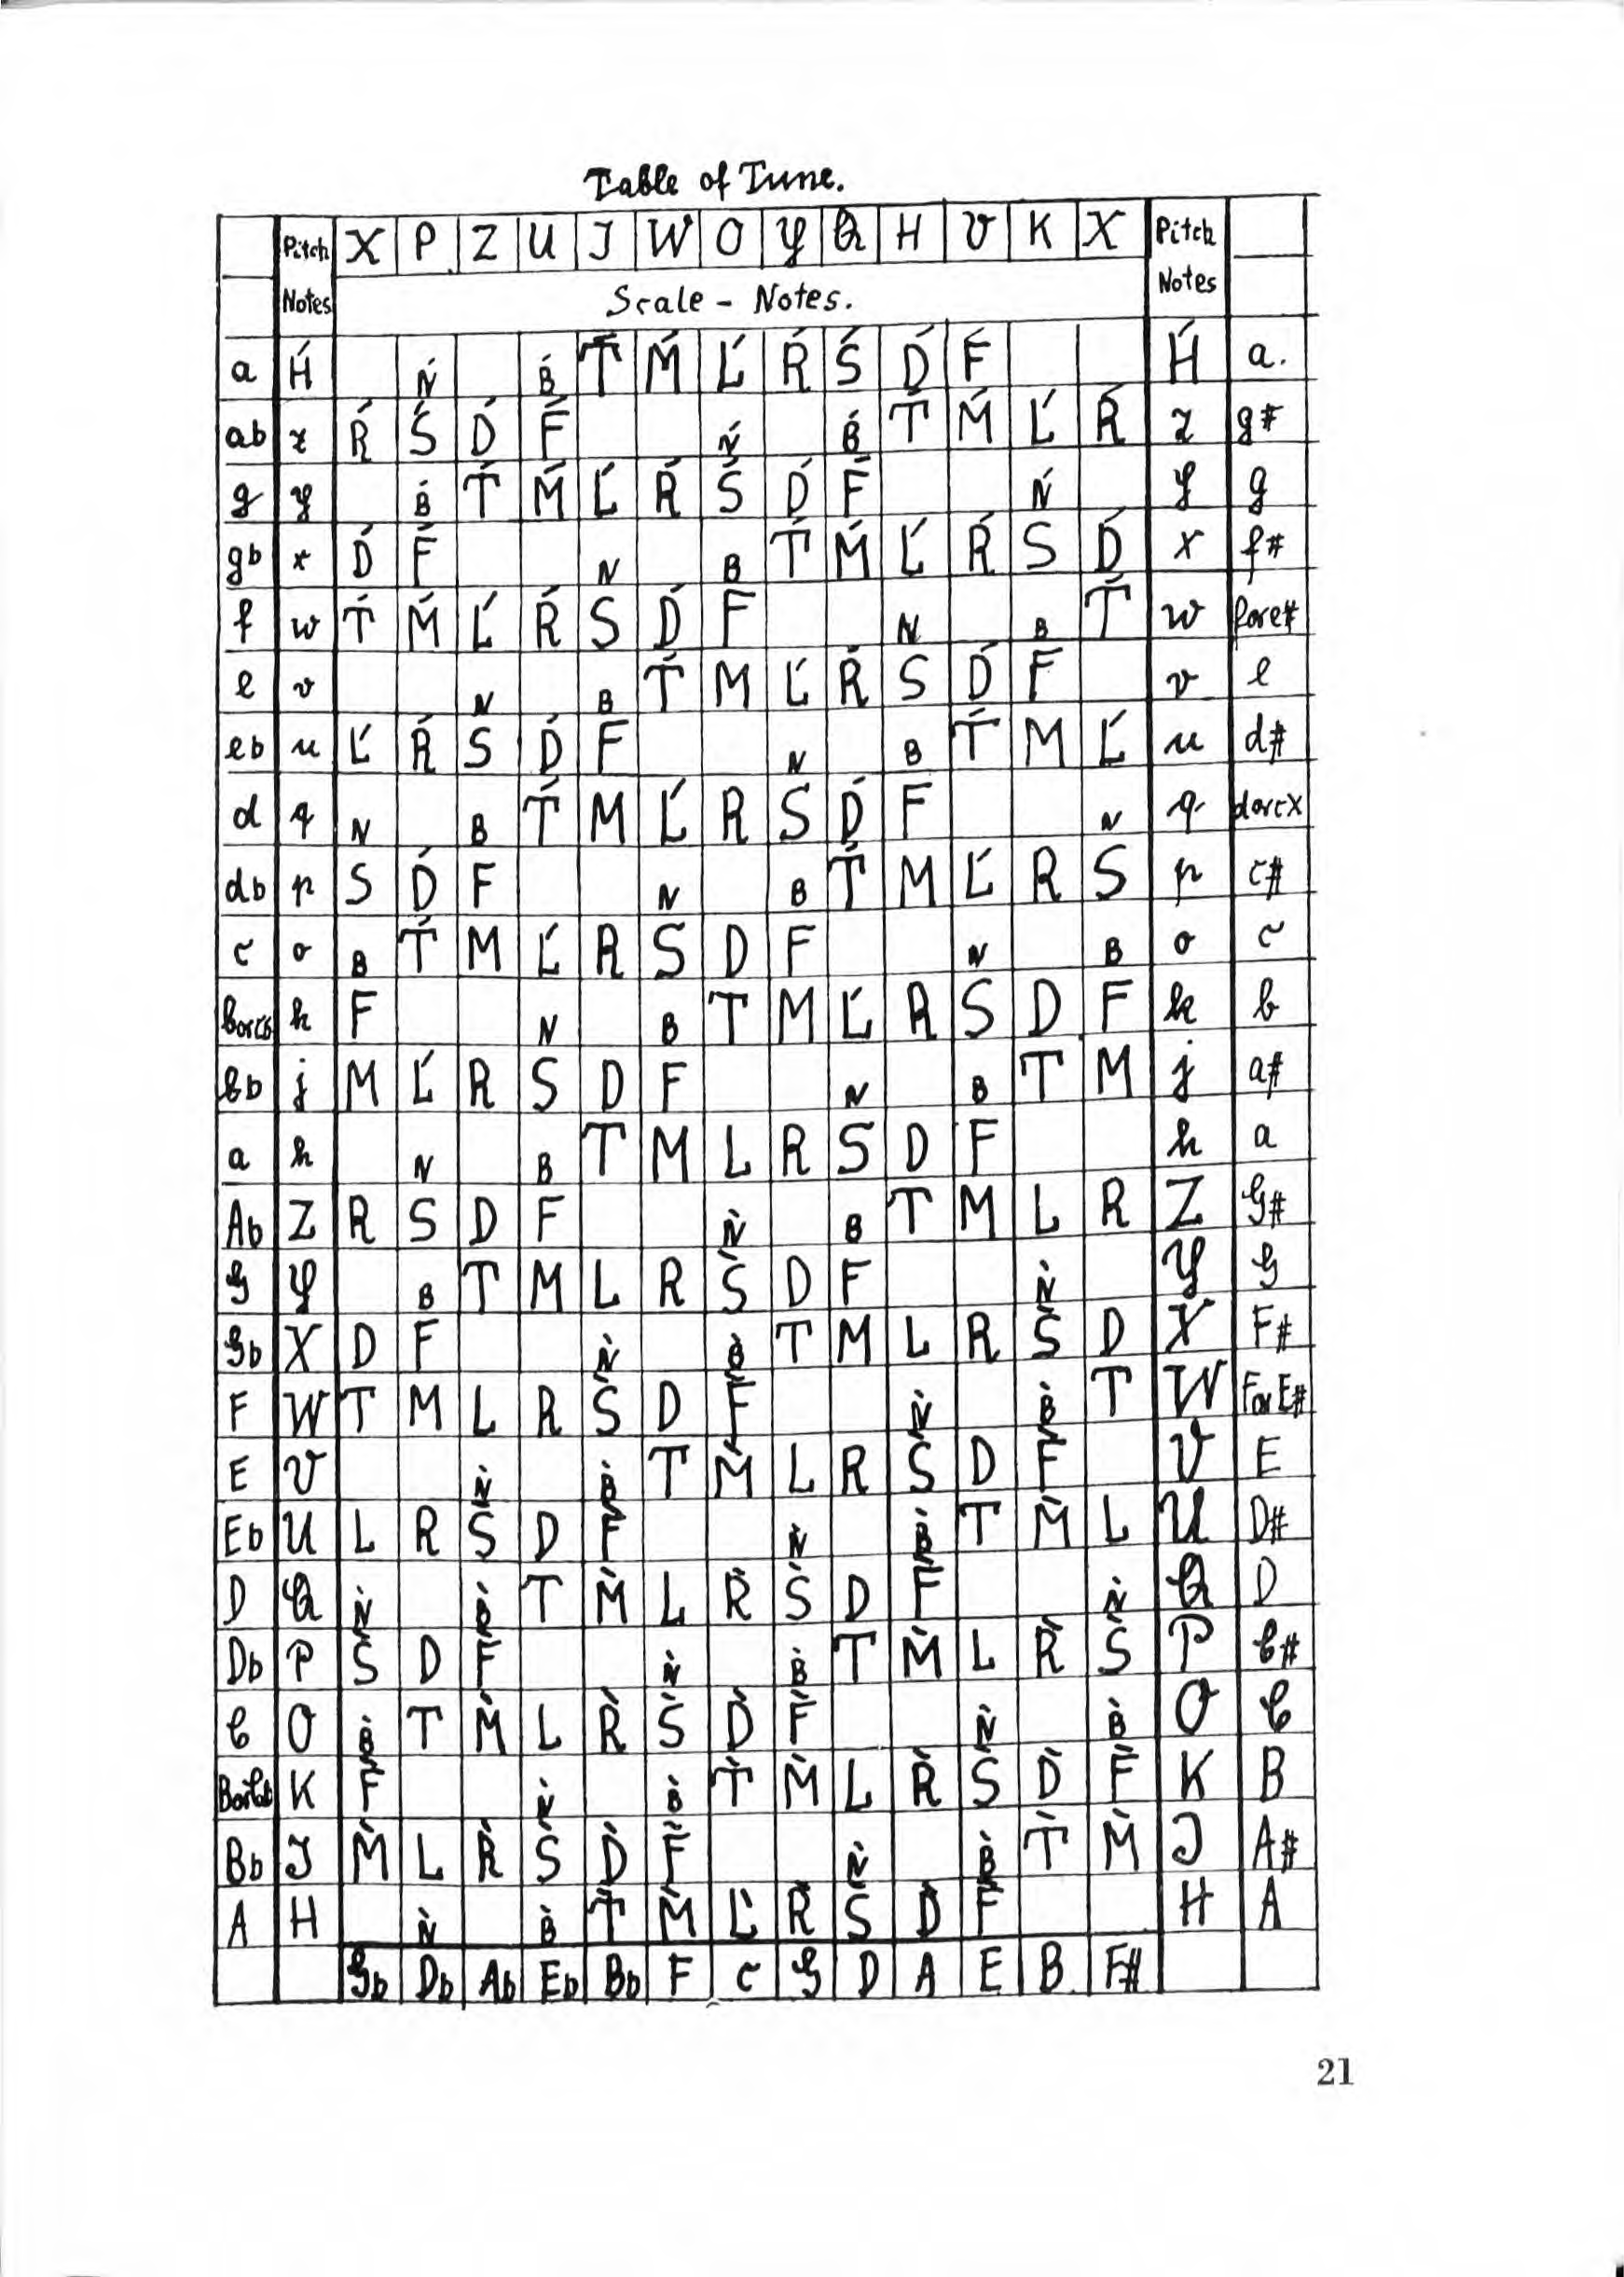 Table of Tune.
Pitch X P Z U J W O Y Q H V K X Pitch
Notes Scale - Notes. Notes
a H́ Ń B́ T́ Ḿ Ĺ Ŕ Ś D́ F́ H́ a.
ab z Ŕ Ś D́ F́ Ń B́ T́ Ḿ Ĺ Ŕ z g#
g y B́ T́ Ḿ Ĺ Ŕ Ś D́ F́ Ń y g
gb x D́ F́ N B T́ Ḿ Ĺ Ŕ S D́ x f#
f w T́ Ḿ Ĺ Ŕ S D́ F N B T́ w fore#
e v N B T́ M Ĺ Ŕ S D́ F v e
eb u Ĺ Ŕ S D́ F N B T́ M Ĺ u d#
d q N B T́ M Ĺ R S D́ F N q dorcx
db p S D́ F N B T́ M Ĺ R S p c#
c o B T́ M Ĺ R S D F N B o c
borcb k F N B T M Ĺ R S D F k b
bb j M Ĺ R S D F N B T M j a#
a h N B T M L R S D F h a
Ab Z R S D F Ǹ B T M L R Z G#
G Y B T M L R S̀ D F Ǹ Y G
Gb X D F Ǹ B̀ T M L R S̀ D X F#
F W T M L R S̀ D F̀ Ǹ B̀ T W For E#
E V Ǹ B̀ T M̀ L R S̀ D F̀ V E
Eb U L R S̀ D F̀ Ǹ B̀ T M̀ L U D#
D Q Ǹ B̀ T M̀ L R̀ S̀ D F̀ Ǹ Q D
Db P S̀ D F̀ Ǹ B̀ T M̀ L R̀ S̀ P C#
C O B̀ T M̀ L R̀ S̀ D̀ F̀ Ǹ B̀ O C
BorCb K F̀ Ǹ B̀ T̀ M̀ L R̀ S̀ D̀ F̀ K B
Bb J M̀ L R̀ S̀ D̀ F̀ Ǹ B̀ T̀ M̀ J A#
A H Ǹ B̀ T̀ M̀ L̀ R̀ S̀ D̀ F̀ H A
Gb Db Ab Eb Bb F C G D A E B F#
21